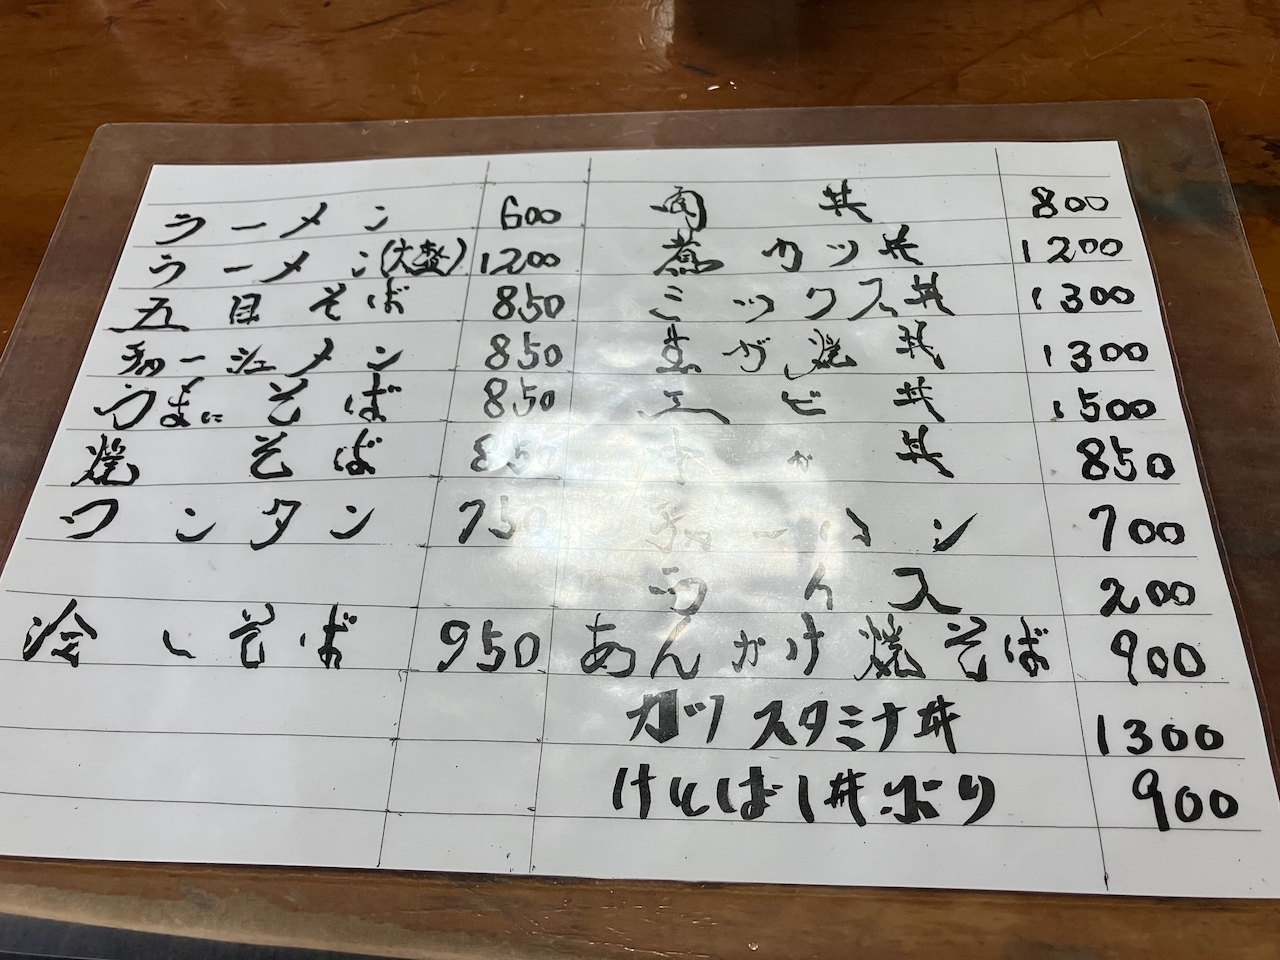 ラーメン 600
ラーメン(大盛) 1200
五目そば 850
チャーシューメン 850
うまにそば 850
焼そば 850
ワンタン 750
冷しそば 950
肉丼 800
煮カツ丼 1200
ミックス丼 1300
生が焼丼 1300
エビ丼 1500
丼 850
チャーハン 700
ライス 200
あんかけ焼そば 900
カツスタミナ丼 1300
900